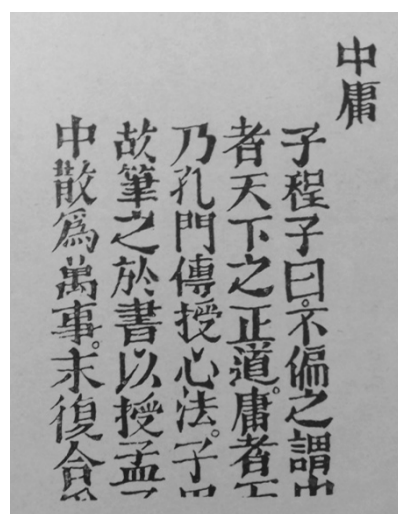 中庸
子程子曰。不偏之謂中
者天下之正道。庸者天
乃孔門傳授心法。子思
故筆之於書以授孟子
中散爲萬事。末復合爲